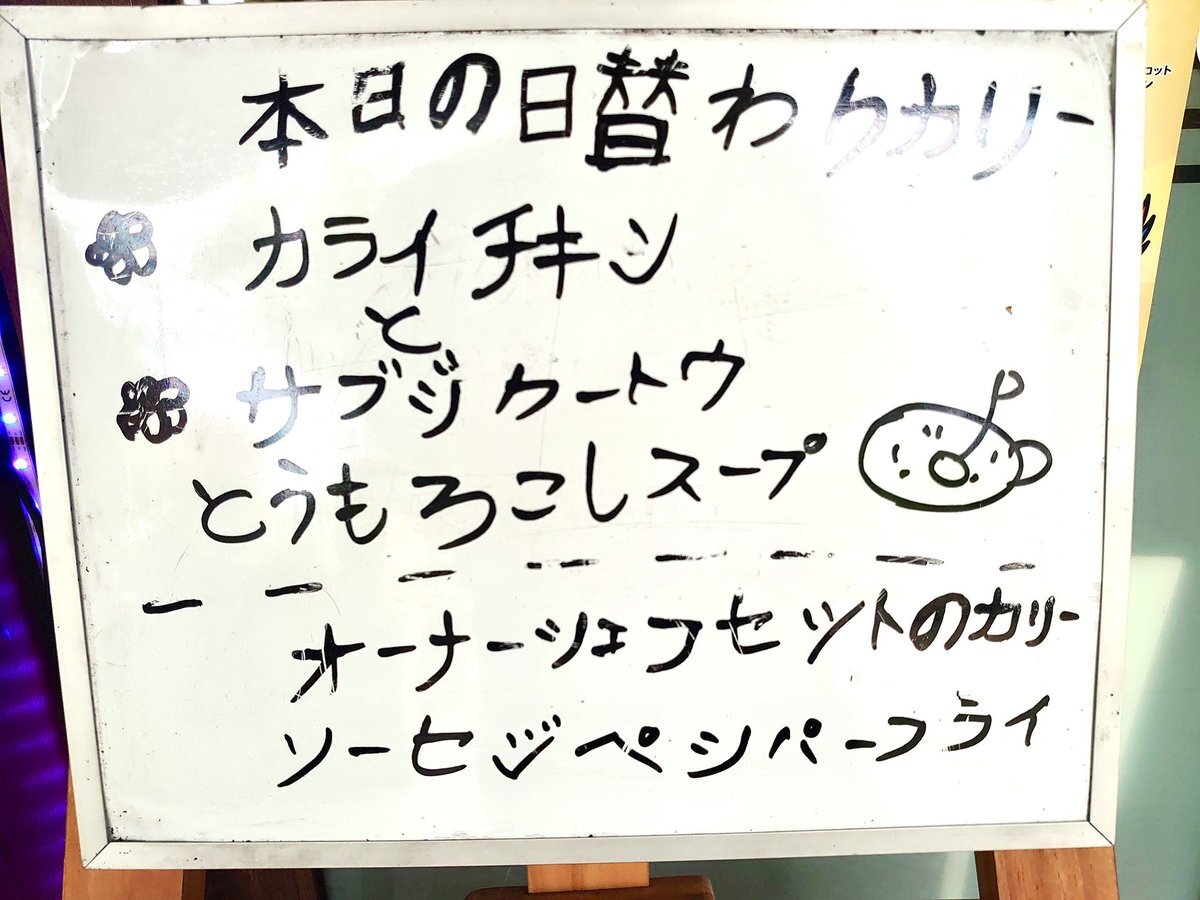 本日の日替わりカリー
カライチキン
と
サブジ カートウ
とうもろこしスープ
オーナーシェフセットのカリー
ソーセジペシパーフライ
コット
ン